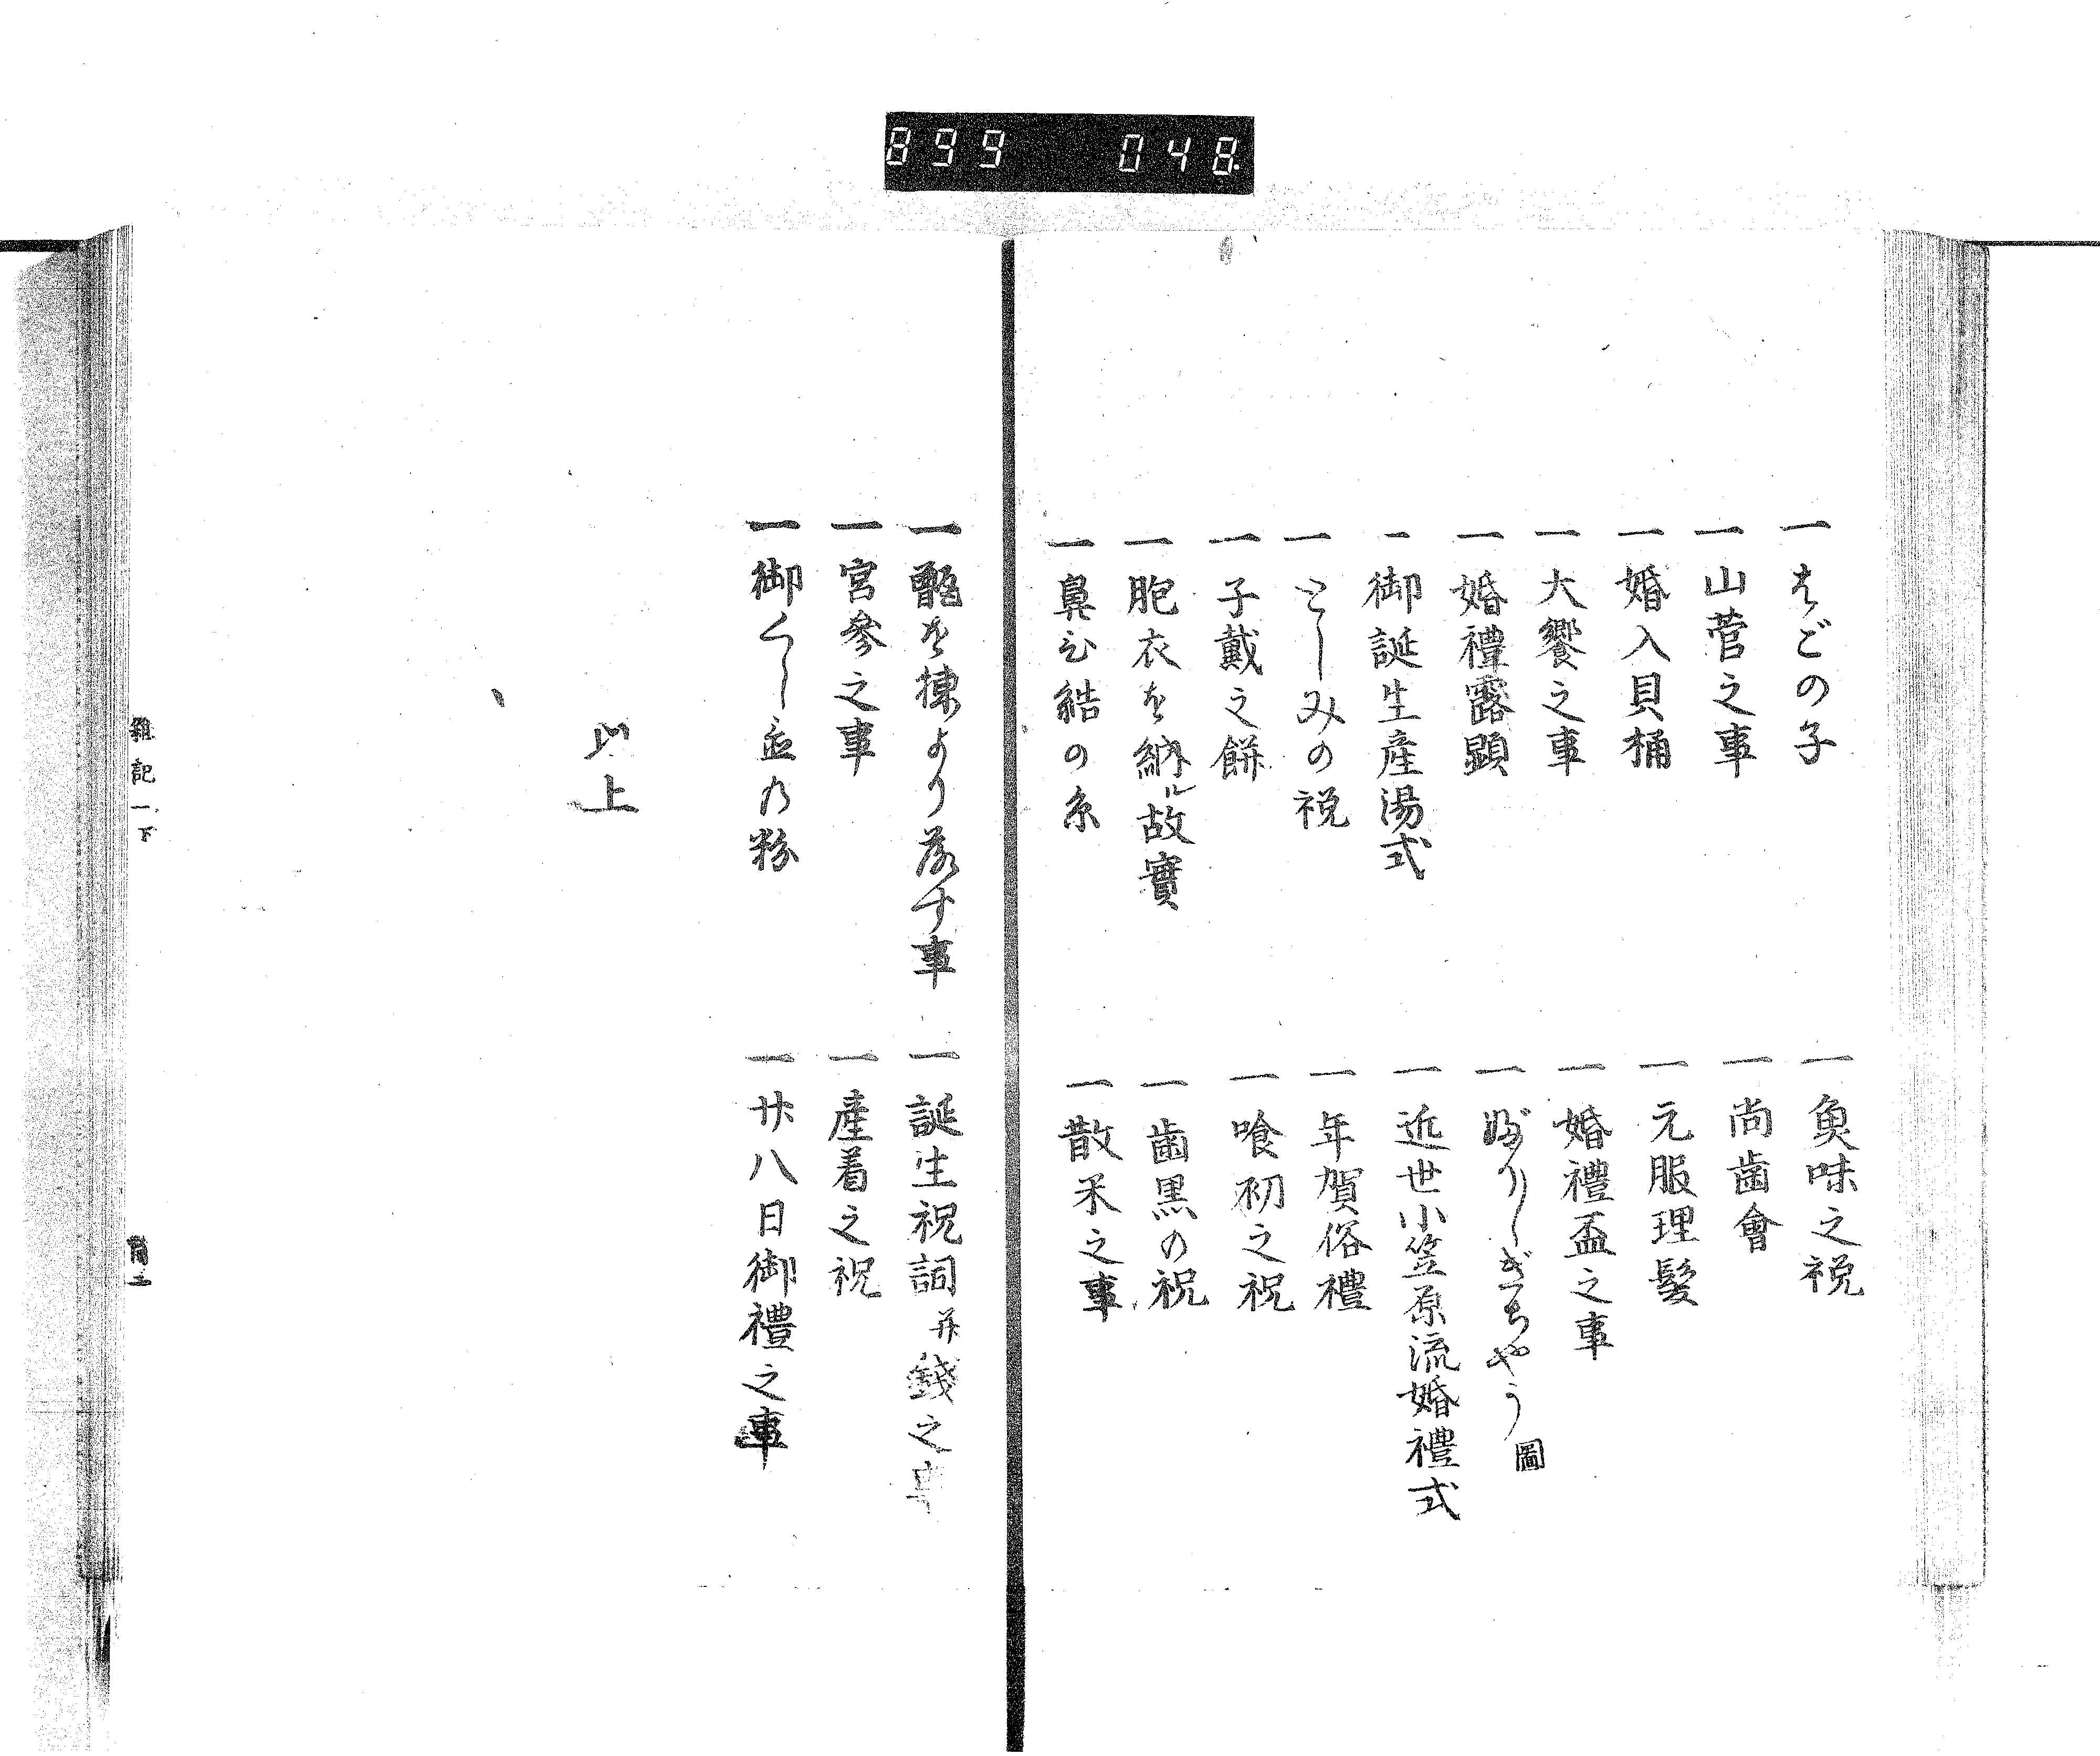 899 048
一 はごの子
一 魚味之祝
一 山菅之事
一 尚歯會
一 婚入貝桶
一 元服理髪
一 大饗之事
一 婚禮盃之事
一 婚禮露顕
一 ぶり〳〵ぎちやう 圖
一 御誕生産湯式
一 近世小笠原流婚禮式
一 としみの祝
一 年賀俗禮
一 子戴之餅
一 喰初之祝
一 胞衣を納ル故實
一 歯黒の祝
一 鼻ひ結の糸
一 散米之事
一 甑を棟より落す事
一 誕生祝詞并錢之事
一 宮参之事
一 産着之祝
一 御くし並乃粉
一 廿八日御禮之事
以上
雜記一下